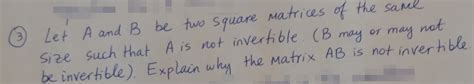 ③ Let A and B be two square matrices of the same
size such that A is not invertible. (B may or may not
be invertible). Explain why the matrix AB is not invertible.